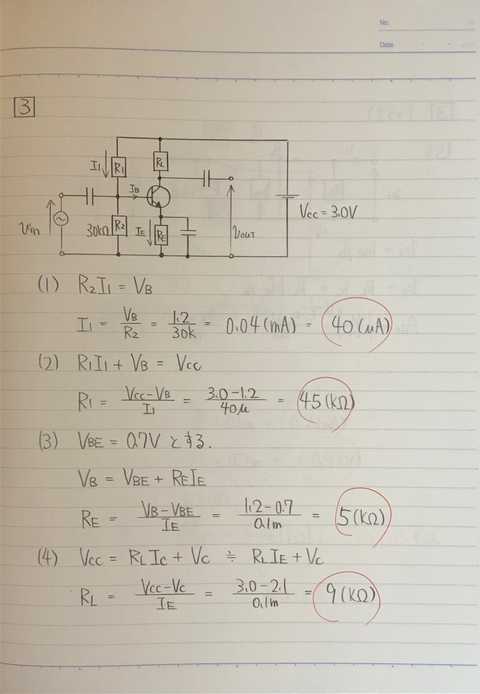 No.
Date
3
I1 R1 RL
IB
Vin 30kΩ R2 IE RE Vout Vcc = 3.0V
(1) R2I1 = VB
I1 = VB/R2 = 1.2/30k = 0.04(mA) = 40(μA)
(2) R1I1 + VB = Vcc
R1 = Vcc-VB/I1 = 3.0-1.2/40μ = 45(kΩ)
(3) VBE = 0.7V とする.
VB = VBE + REIE
RE = VB-VBE/IE = 1.2-0.7/0.1m = 5(kΩ)
(4) Vcc = RLIc + Vc ≒ RLIE + Vc
RL = Vcc-Vc/IE = 3.0-2.1/0.1m = 9(kΩ)